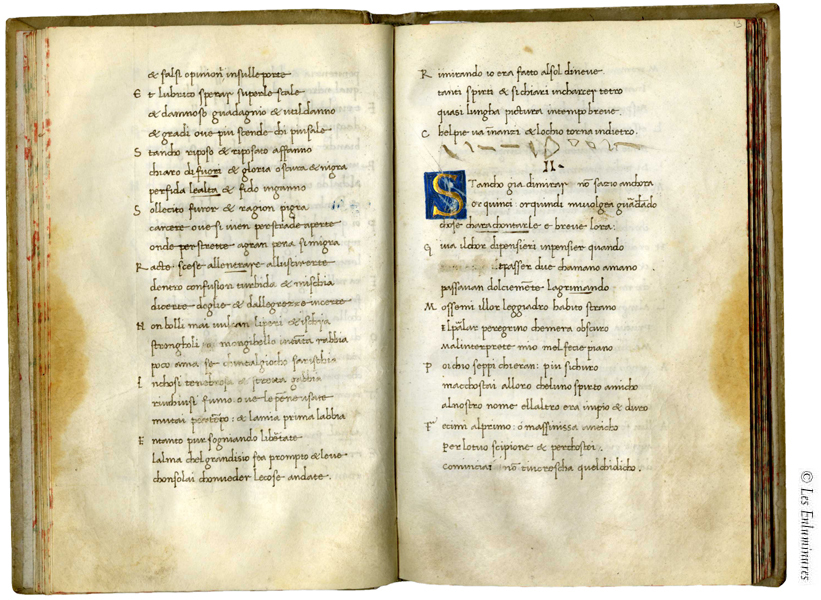 & falsi opinioni insulle porte
E t lubrico sperar super le scale
& dannoso guadagnio & util danno
& gradi ove piu scende chi piu sale
S tancho riposo & riposato affanno
chiaro di fuori & gloria oscura & nigra
perfida lealta & fido inganno
S ollecito furor & ragion pigra
carcere ove si vien per strade aperte
onde per strette a gran pena si migra
R atte scese allentrare allusir erte
dentro confusion turbida & mischia
di certe doglie & dallegrezze incerte
N on bolli mai vulcan lipari & ischia
strongholi mongibello rabbia
poco ama se chental giocho sarischia
I nchosi tenebrosa & strecta gabbia
rinchiusi fumo ove le pene usate
mutai & lamia prima labbia
E ntanto pur sogniando libertate
lalma chel gran disio fea prompto & leve
chonsolai chon veder le cose andate.
13
R imirando io era fatto al sol di neve
tanti spirti & si chiari in charcer tetro
quasi lungha pictura in tempo breve.
C hel pie va inanzi & locho torna indietro.
II.
S Tancho gia di mirar non sazio anchora
or quinci or quindi mi volgea guardando
chose charachontarle e breve lora:
G iva il chor di pensieri in pensier quando
passer due cha mano a mano
passavan dolcemente lagrimando
M ossemi il lor leggiadro habito strano
El parlar peregrino che mera obscuro
Ma linterprete mio mel fecie piano
P oi chio seppi chi eran: piu sichuro
macchostai alloro che luno spirto amicho
al nostro nome ellaltro era impio & duro
F ecimi al primo: o massinissa anticho
per lo tuo scipione & per chostei
cominciai non ti increscha quel chi dicho.
© Les Enluminures